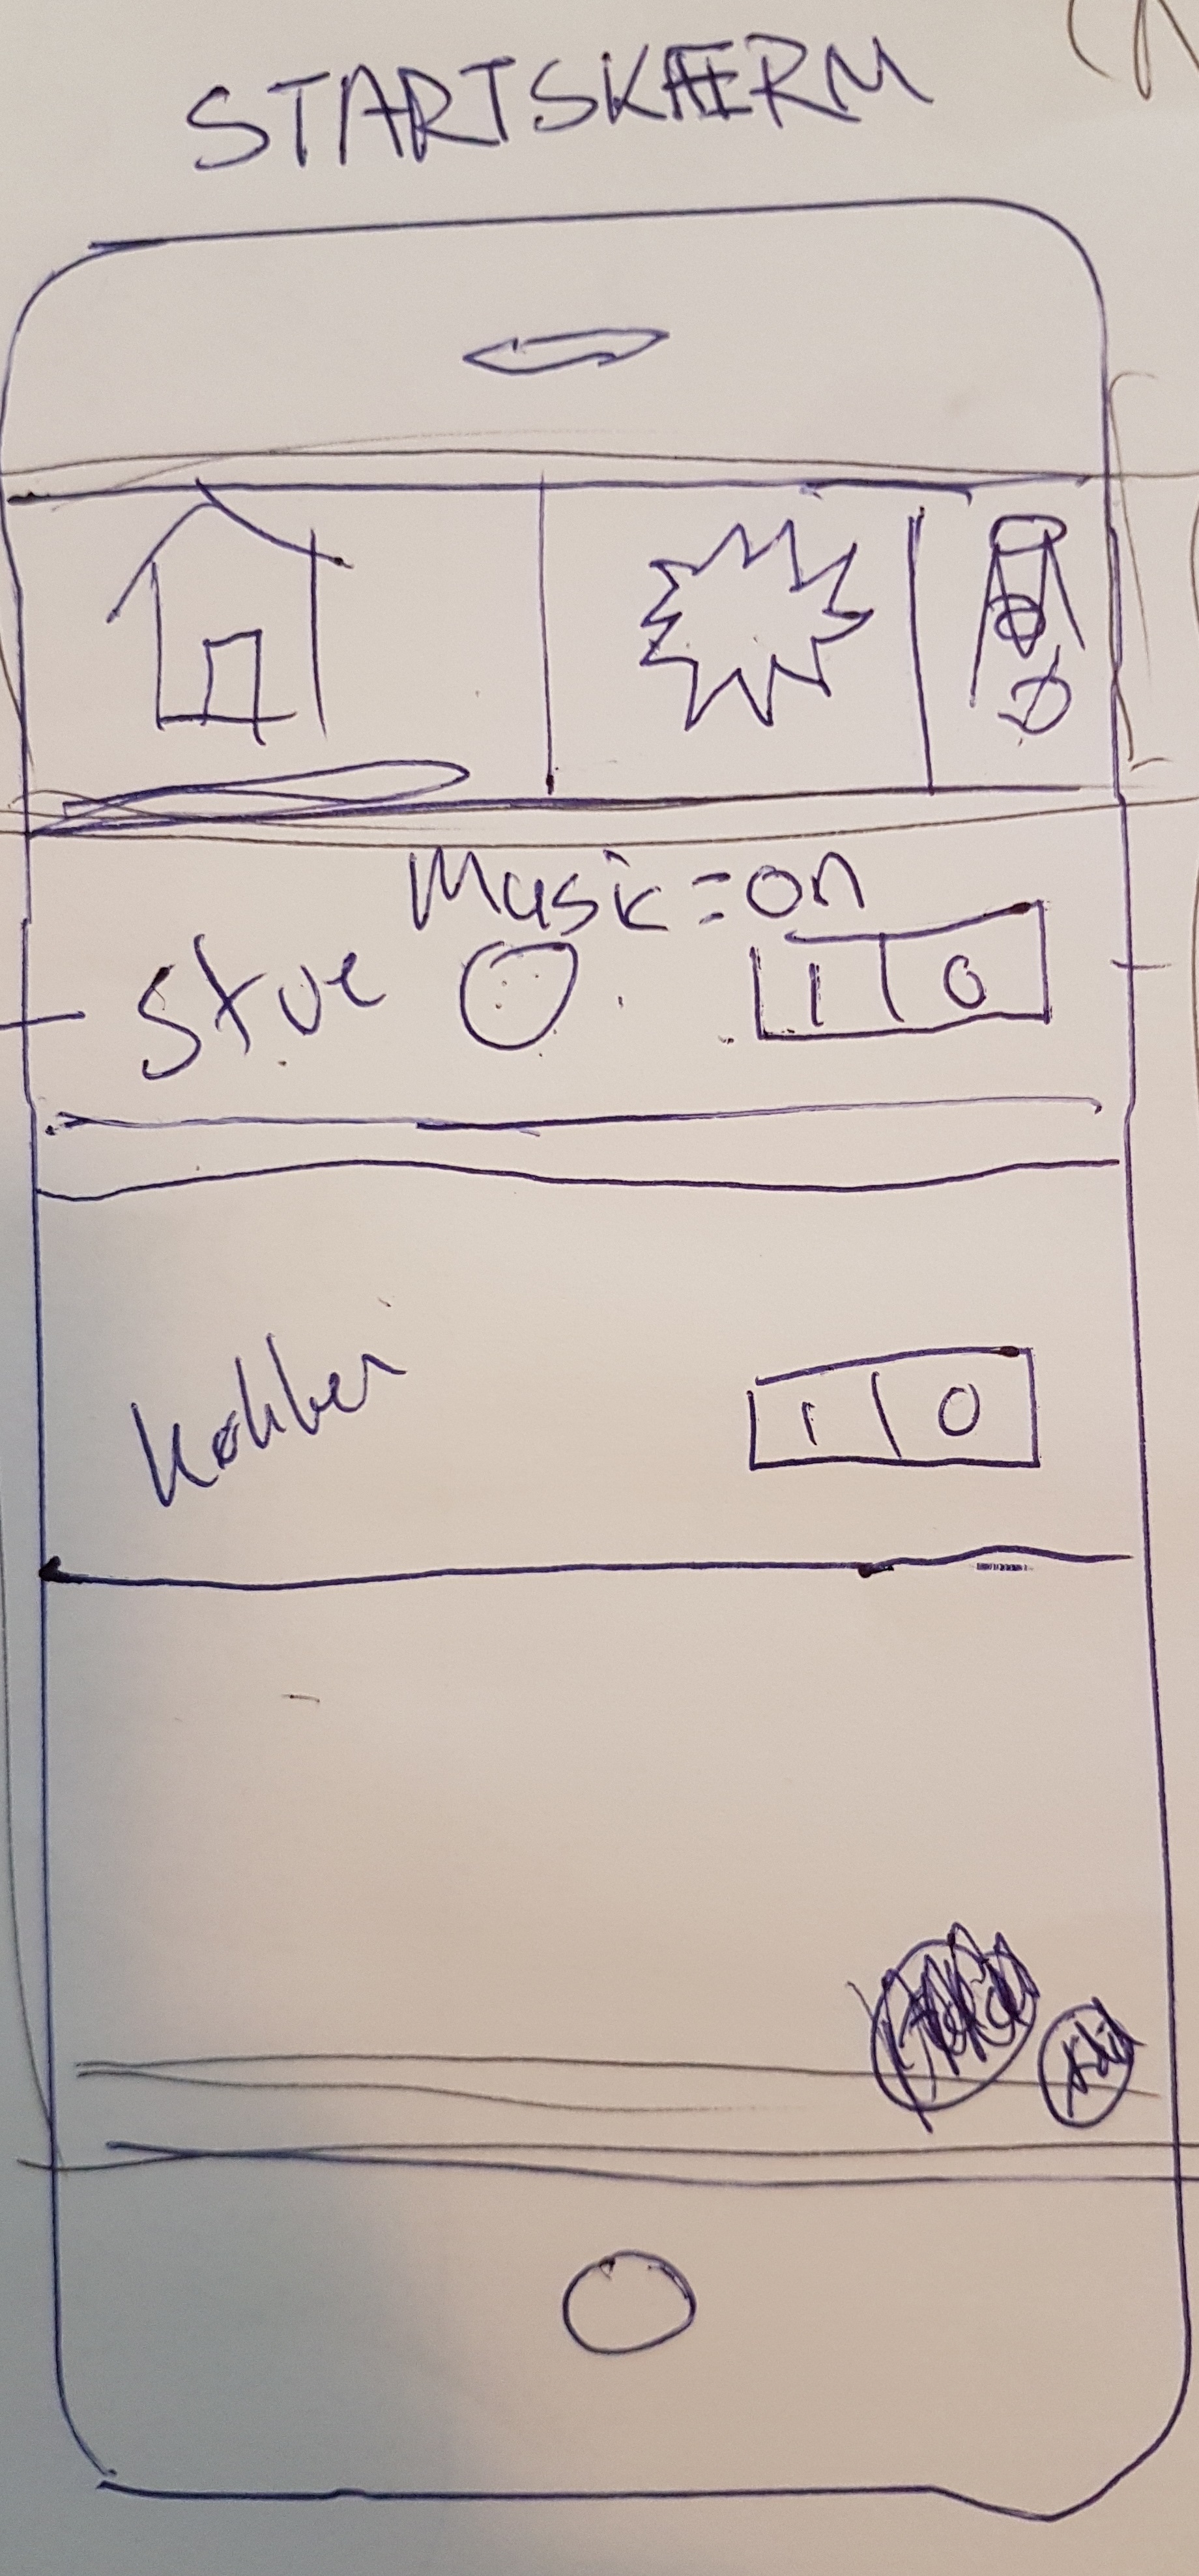 STARTSKÆRM
Music=on
Stue
1 0
Køkken
1 0